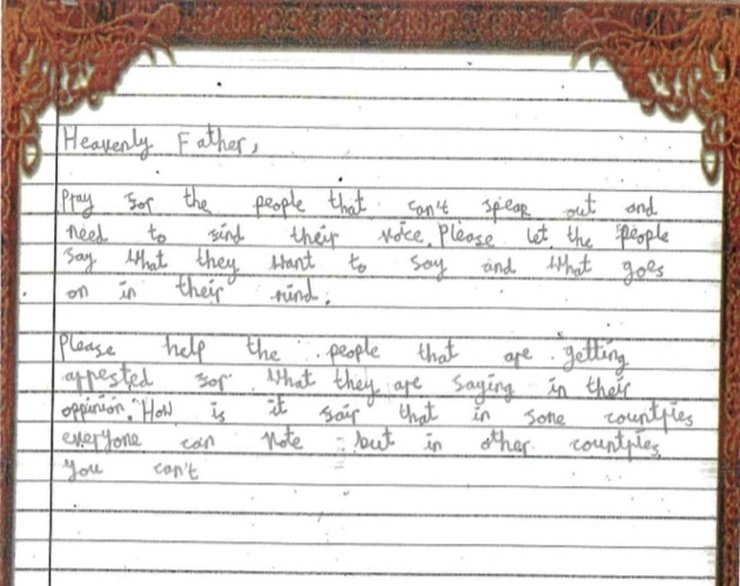 Heavenly Father,
Pray for the people that can't speak out and
need to find their voice. Please let the people
say what they want to say and what goes
on in their mind.
Please help the people that are getting
arrested for what they are saying in their
oppinion. How is it fair that in some countries
everyone can vote but in other countries
you can't